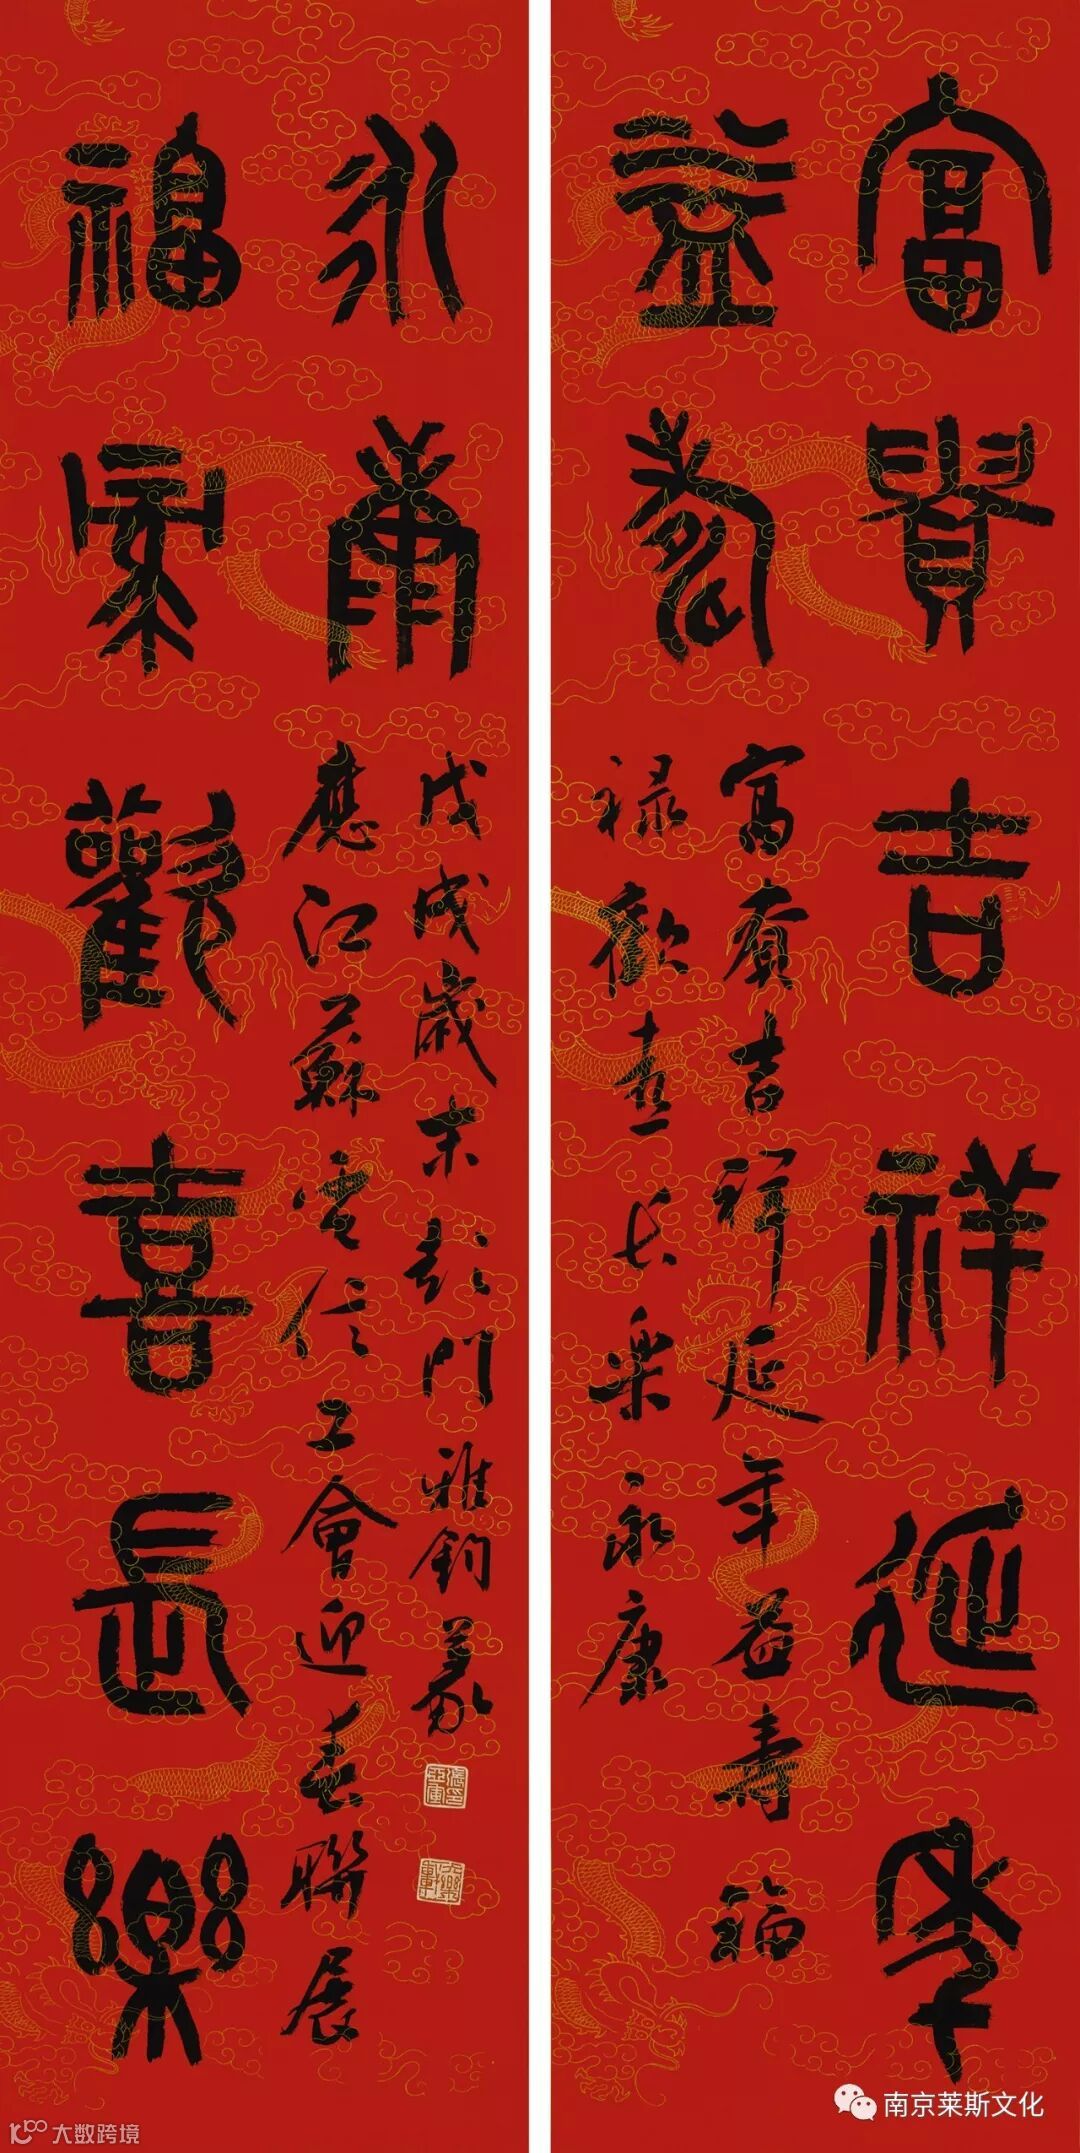 富貴吉祥延年
益壽
富貴吉祥延年益壽福
禄歡喜長樂永康
永康
戊戌歲末彭門雅鈞篆
應江蘇電信工會迎春聯展
福录歡喜長樂
南京莱斯文化
大数跨境